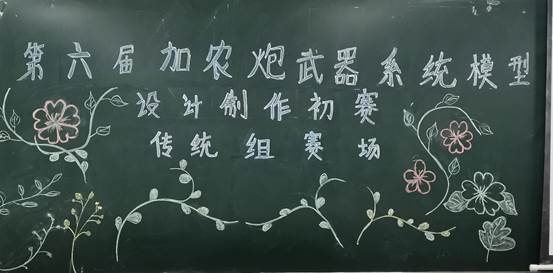 第六届加农炮武器系统模型
设计制作初赛
传统组赛场